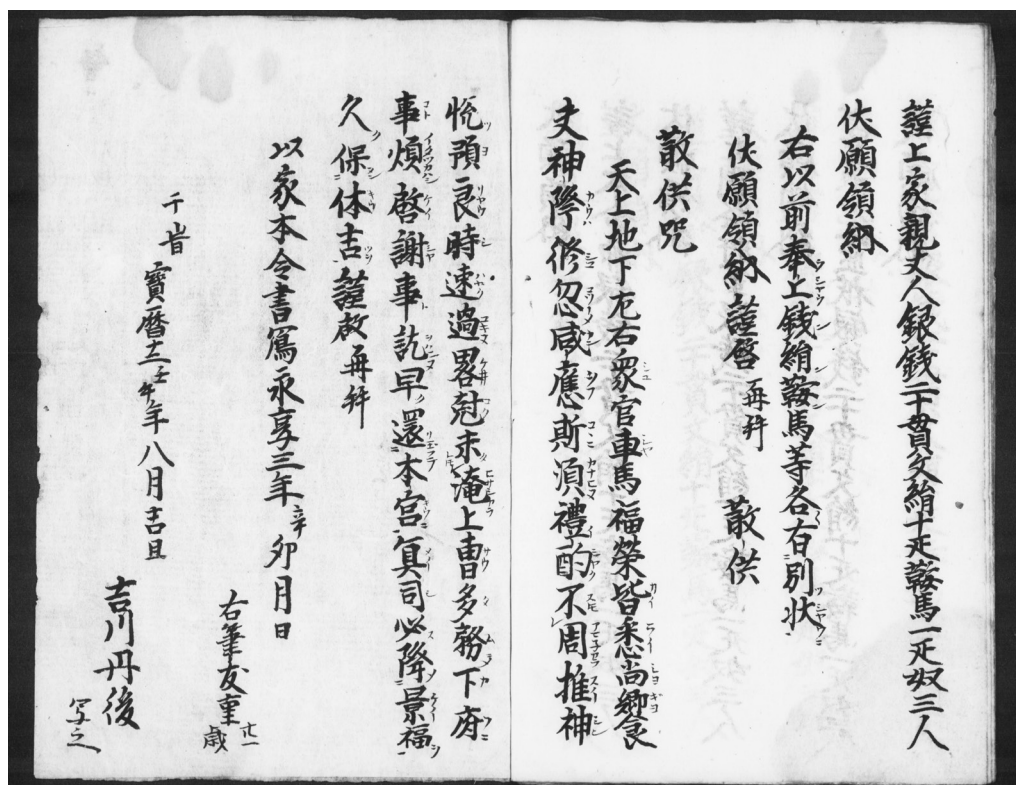 謹上家親丈人銀銭二千貫文絹十疋鞍馬一疋奴三人
伏願領納
右以前奉上銭絹鞍馬等各有別状
伏願領納謹啓 再拝 散供
散供咒
天上地下左右衆官車馬福榮皆悉尚饗
丈神降修忽咸應斯須禮酌不周推神
恱預良時速過晷尅未淹上曹多務下府
事煩啓謝事訖早還本宮冥司必降景福
久保休吉謹啟 再拝
以家本令書寫永享三年辛卯月日
右筆友重 廿一歳
干峕 寳暦十二壬午年八月吉旦
吉川丹後
写之